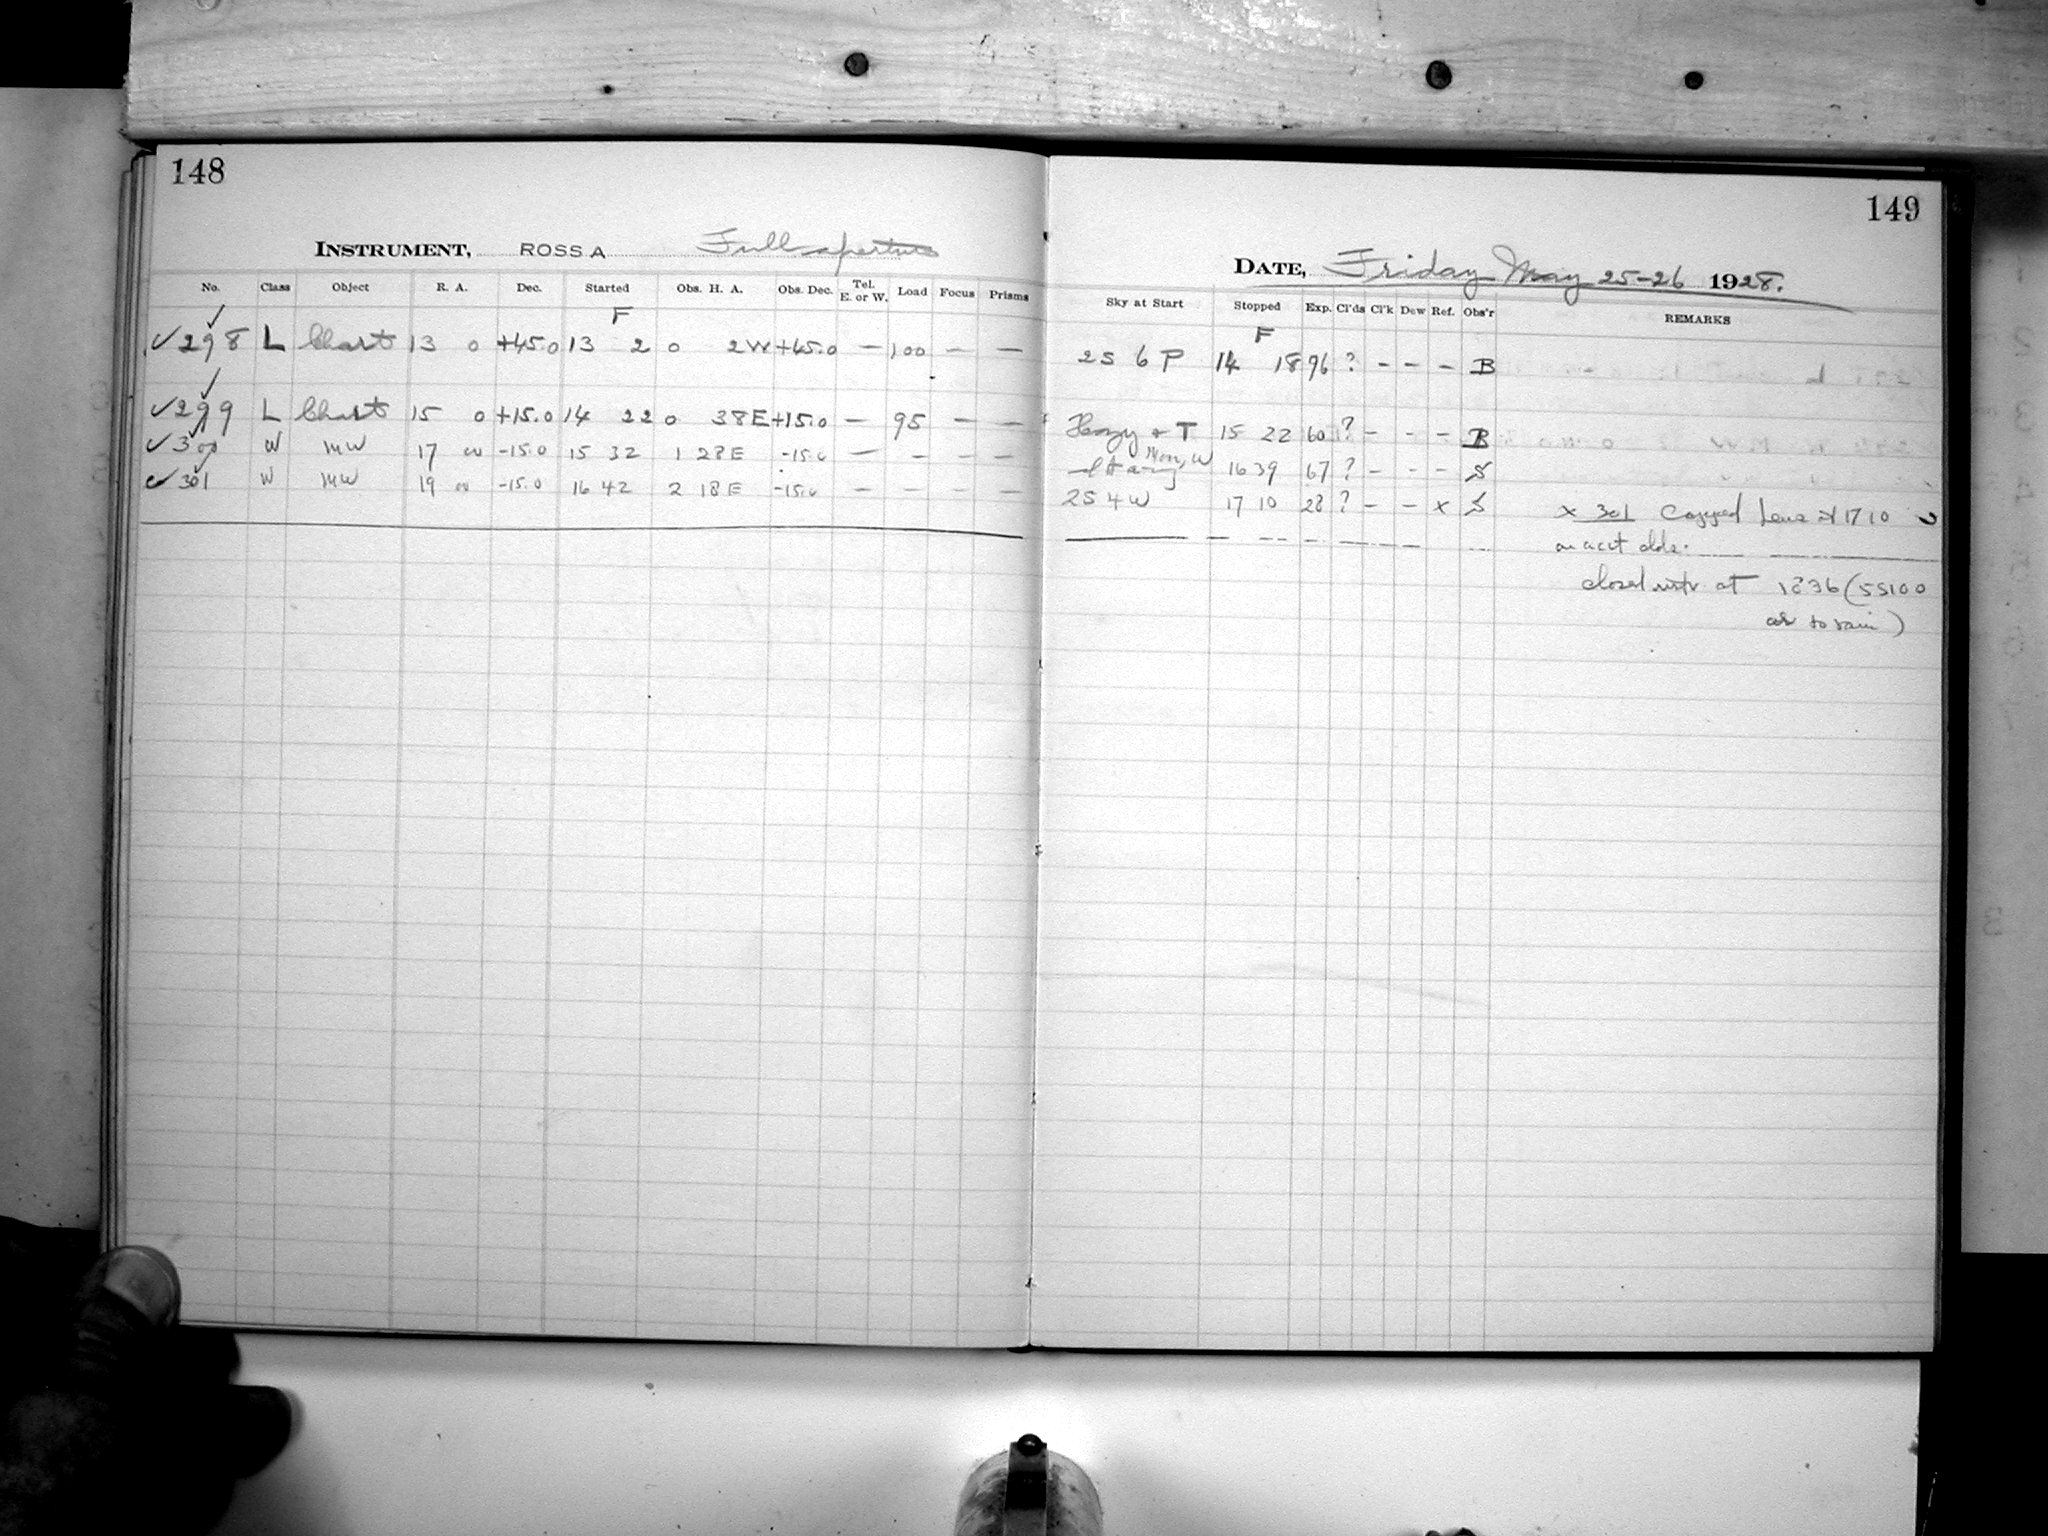 148
INSTRUMENT, ROSS A Full aperture
No. Class Object R. A. Dec. Started Obs. H. A. Obs. Dec. Tel. E. or W. Load Focus Prisms
F
✓298 L Chart 13 0 +45.0 13 2 0 2W +45.0 — 100 — —
✓299 L Chart 15 0 +15.0 14 22 0 38E +15.0 — 95 — —
✓300 W MW 17 00 -15.0 15 32 1 28E -15.0 — - - —
✓301 W MW 19 00 -15.0 16 42 2 18E -15.0 — — — —
149
DATE, Friday May 25-26 1928.
Sky at Start Stopped Exp. Cl'ds Cl'k Dew Ref. Obs'r REMARKS
F
2S 6 P 14 18 96 ? - - - B
Hazy + T 15 22 60 ? - - - B
Moon, W 16 39 67 ? - - - S
2S 4 W 17 10 28 ? - - x S x 301 Capped Lens at 1710
on acct clds.
closed at 1836 (5S100
to rain)